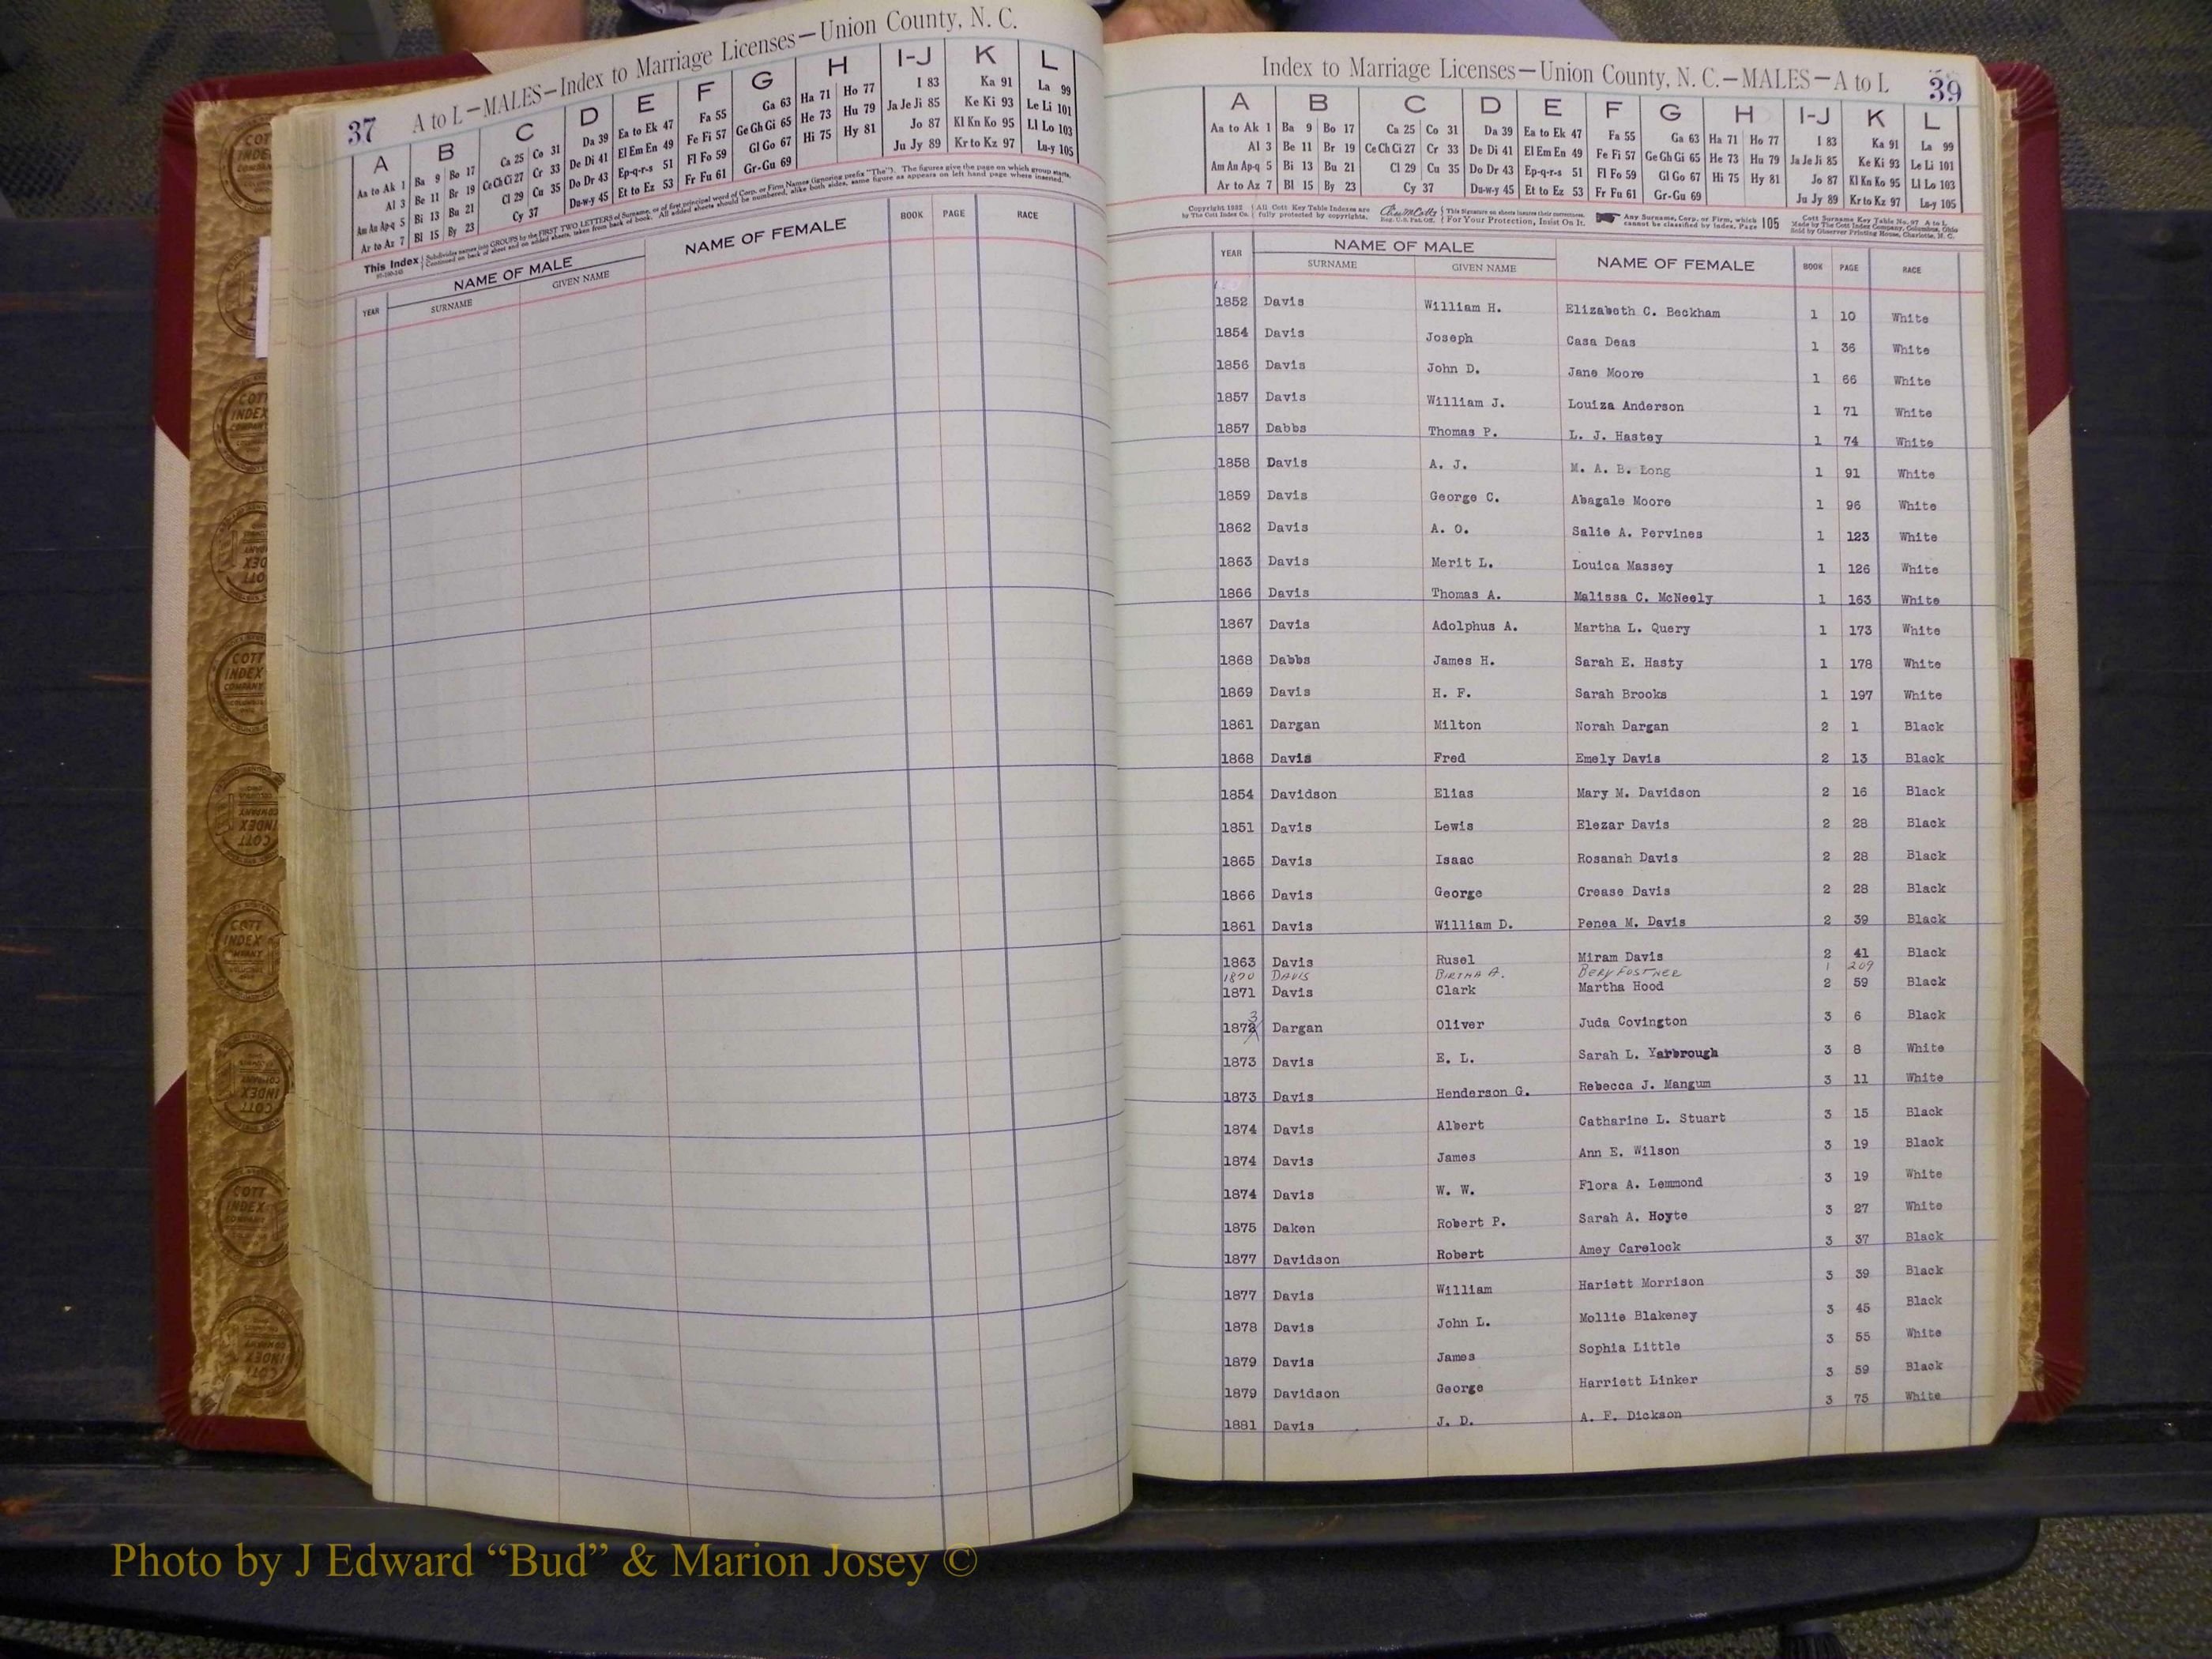 37 A to L—MALES—Index to Marriage Licenses—Union County, N. C.
A B C D E F G H I-J K L
Aa to Ak 1 Ba 9 Bo 17 Ca 25 Co 31 Da 39 Ea to Ek 47 Fa 55 Ga 63 Ha 71 Ho 77 I 83 Ka 91 La 99
Al 3 Be 11 Br 19 Ce Ch Ci 27 Cr 33 De Di 41 El Em En 49 Fe Fi 57 Ge Gh Gi 65 He 73 Hu 79 Ja Je Ji 85 Ke Ki 93 Le Li 101
Am An Ap-q 5 Bi 13 Bu 21 Cl 29 Cu 35 Do Dr 43 Ep-q-r-s 51 Fl Fo 59 Gl Go 67 Hi 75 Hy 81 Jo 87 Kl Kn Ko 95 Ll Lo 103
Ar to Az 7 Bl 15 By 23 Cy 37 Du-w-y 45 Et to Ez 53 Fr Fu 61 Gr-Gu 69 Ju Jy 89 Kr to Kz 97 Lu-y 105
This Index Subdivides names into GROUPS by the FIRST TWO LETTERS of Surname, or of first principal word of Corp. or Firm Names (ignoring prefix "The"). The figures give the page on which group starts.
Continued on back of sheet and on added sheets, taken from back of book. All added sheets should be numbered, alike both sides, same figure as appears on left hand page where inserted.
YEAR NAME OF MALE NAME OF FEMALE BOOK PAGE RACE
SURNAME GIVEN NAME
Index to Marriage Licenses—Union County, N. C.—MALES—A to L 39
A B C D E F G H I-J K L
Aa to Ak 1 Ba 9 Bo 17 Ca 25 Co 31 Da 39 Ea to Ek 47 Fa 55 Ga 63 Ha 71 Ho 77 I 83 Ka 91 La 99
Al 3 Be 11 Br 19 Ce Ch Ci 27 Cr 33 De Di 41 El Em En 49 Fe Fi 57 Ge Gh Gi 65 He 73 Hu 79 Ja Je Ji 85 Ke Ki 93 Le Li 101
Am An Ap-q 5 Bi 13 Bu 21 Cl 29 Cu 35 Do Dr 43 Ep-q-r-s 51 Fl Fo 59 Gl Go 67 Hi 75 Hy 81 Jo 87 Kl Kn Ko 95 Ll Lo 103
Ar to Az 7 Bl 15 By 23 Cy 37 Du-w-y 45 Et to Ez 53 Fr Fu 61 Gr-Gu 69 Ju Jy 89 Kr to Kz 97 Lu-y 105
Copyright 1932 All Cott Key Table Indexes are This Signature on sheets insures their correctness. Any Surname, Corp. or Firm, which 105 Cott Surname Key Table No. 97 A to L
by The Cott Index Co. fully protected by copyrights. Reg. U.S. Pat. Off. For Your Protection, Insist On It. cannot be classified by Index, Page Made by The Cott Index Company, Columbus, Ohio
Sold by Observer Printing House, Charlotte, N. C.
YEAR NAME OF MALE NAME OF FEMALE BOOK PAGE RACE
SURNAME GIVEN NAME
1852 Davis William H. Elizabeth C. Beckham 1 10 White
1854 Davis Joseph Casa Deas 1 36 White
1856 Davis John D. Jane Moore 1 66 White
1857 Davis William J. Louiza Anderson 1 71 White
1857 Dabbs Thomas P. L. J. Hastey 1 74 White
1858 Davis A. J. M. A. B. Long 1 91 White
1859 Davis George C. Abagale Moore 1 96 White
1862 Davis A. O. Salie A. Pervines 1 123 White
1863 Davis Merit L. Louica Massey 1 126 White
1866 Davis Thomas A. Malissa C. McNeely 1 163 White
1867 Davis Adolphus A. Martha L. Query 1 173 White
1868 Dabbs James H. Sarah E. Hasty 1 178 White
1869 Davis H. F. Sarah Brooks 1 197 White
1861 Dargan Milton Norah Dargan 2 1 Black
1868 Davis Fred Emely Davis 2 13 Black
1854 Davidson Elias Mary M. Davidson 2 16 Black
1851 Davis Lewis Elezar Davis 2 28 Black
1865 Davis Isaac Rosanah Davis 2 28 Black
1866 Davis George Crease Davis 2 28 Black
1861 Davis William D. Penea M. Davis 2 39 Black
1863 Davis Rusel Miram Davis 2 41 Black
1870 DAVIS BIRTHA A. BERY FOSTNER 1 209
1871 Davis Clark Martha Hood 2 59 Black
1872 3 Dargan Oliver Juda Covington 3 6 Black
1873 Davis E. L. Sarah L. Yarbrough 3 8 White
1873 Davis Henderson G. Rebecca J. Mangum 3 11 White
1874 Davis Albert Catharine L. Stuart 3 15 Black
1874 Davis James Ann E. Wilson 3 19 Black
1874 Davis W. W. Flora A. Lemmond 3 19 White
1875 Daken Robert P. Sarah A. Hoyte 3 27 White
1877 Davidson Robert Amey Carelock 3 37 Black
1877 Davis William Hariett Morrison 3 39 Black
1878 Davis John L. Mollie Blakeney 3 45 Black
1879 Davis James Sophia Little 3 55 White
1879 Davidson George Harriett Linker 3 59 Black
1881 Davis J. D. A. F. Dickson 3 75 White
COTT INDEX COMPANY
Photo by J Edward “Bud” & Marion Josey ©